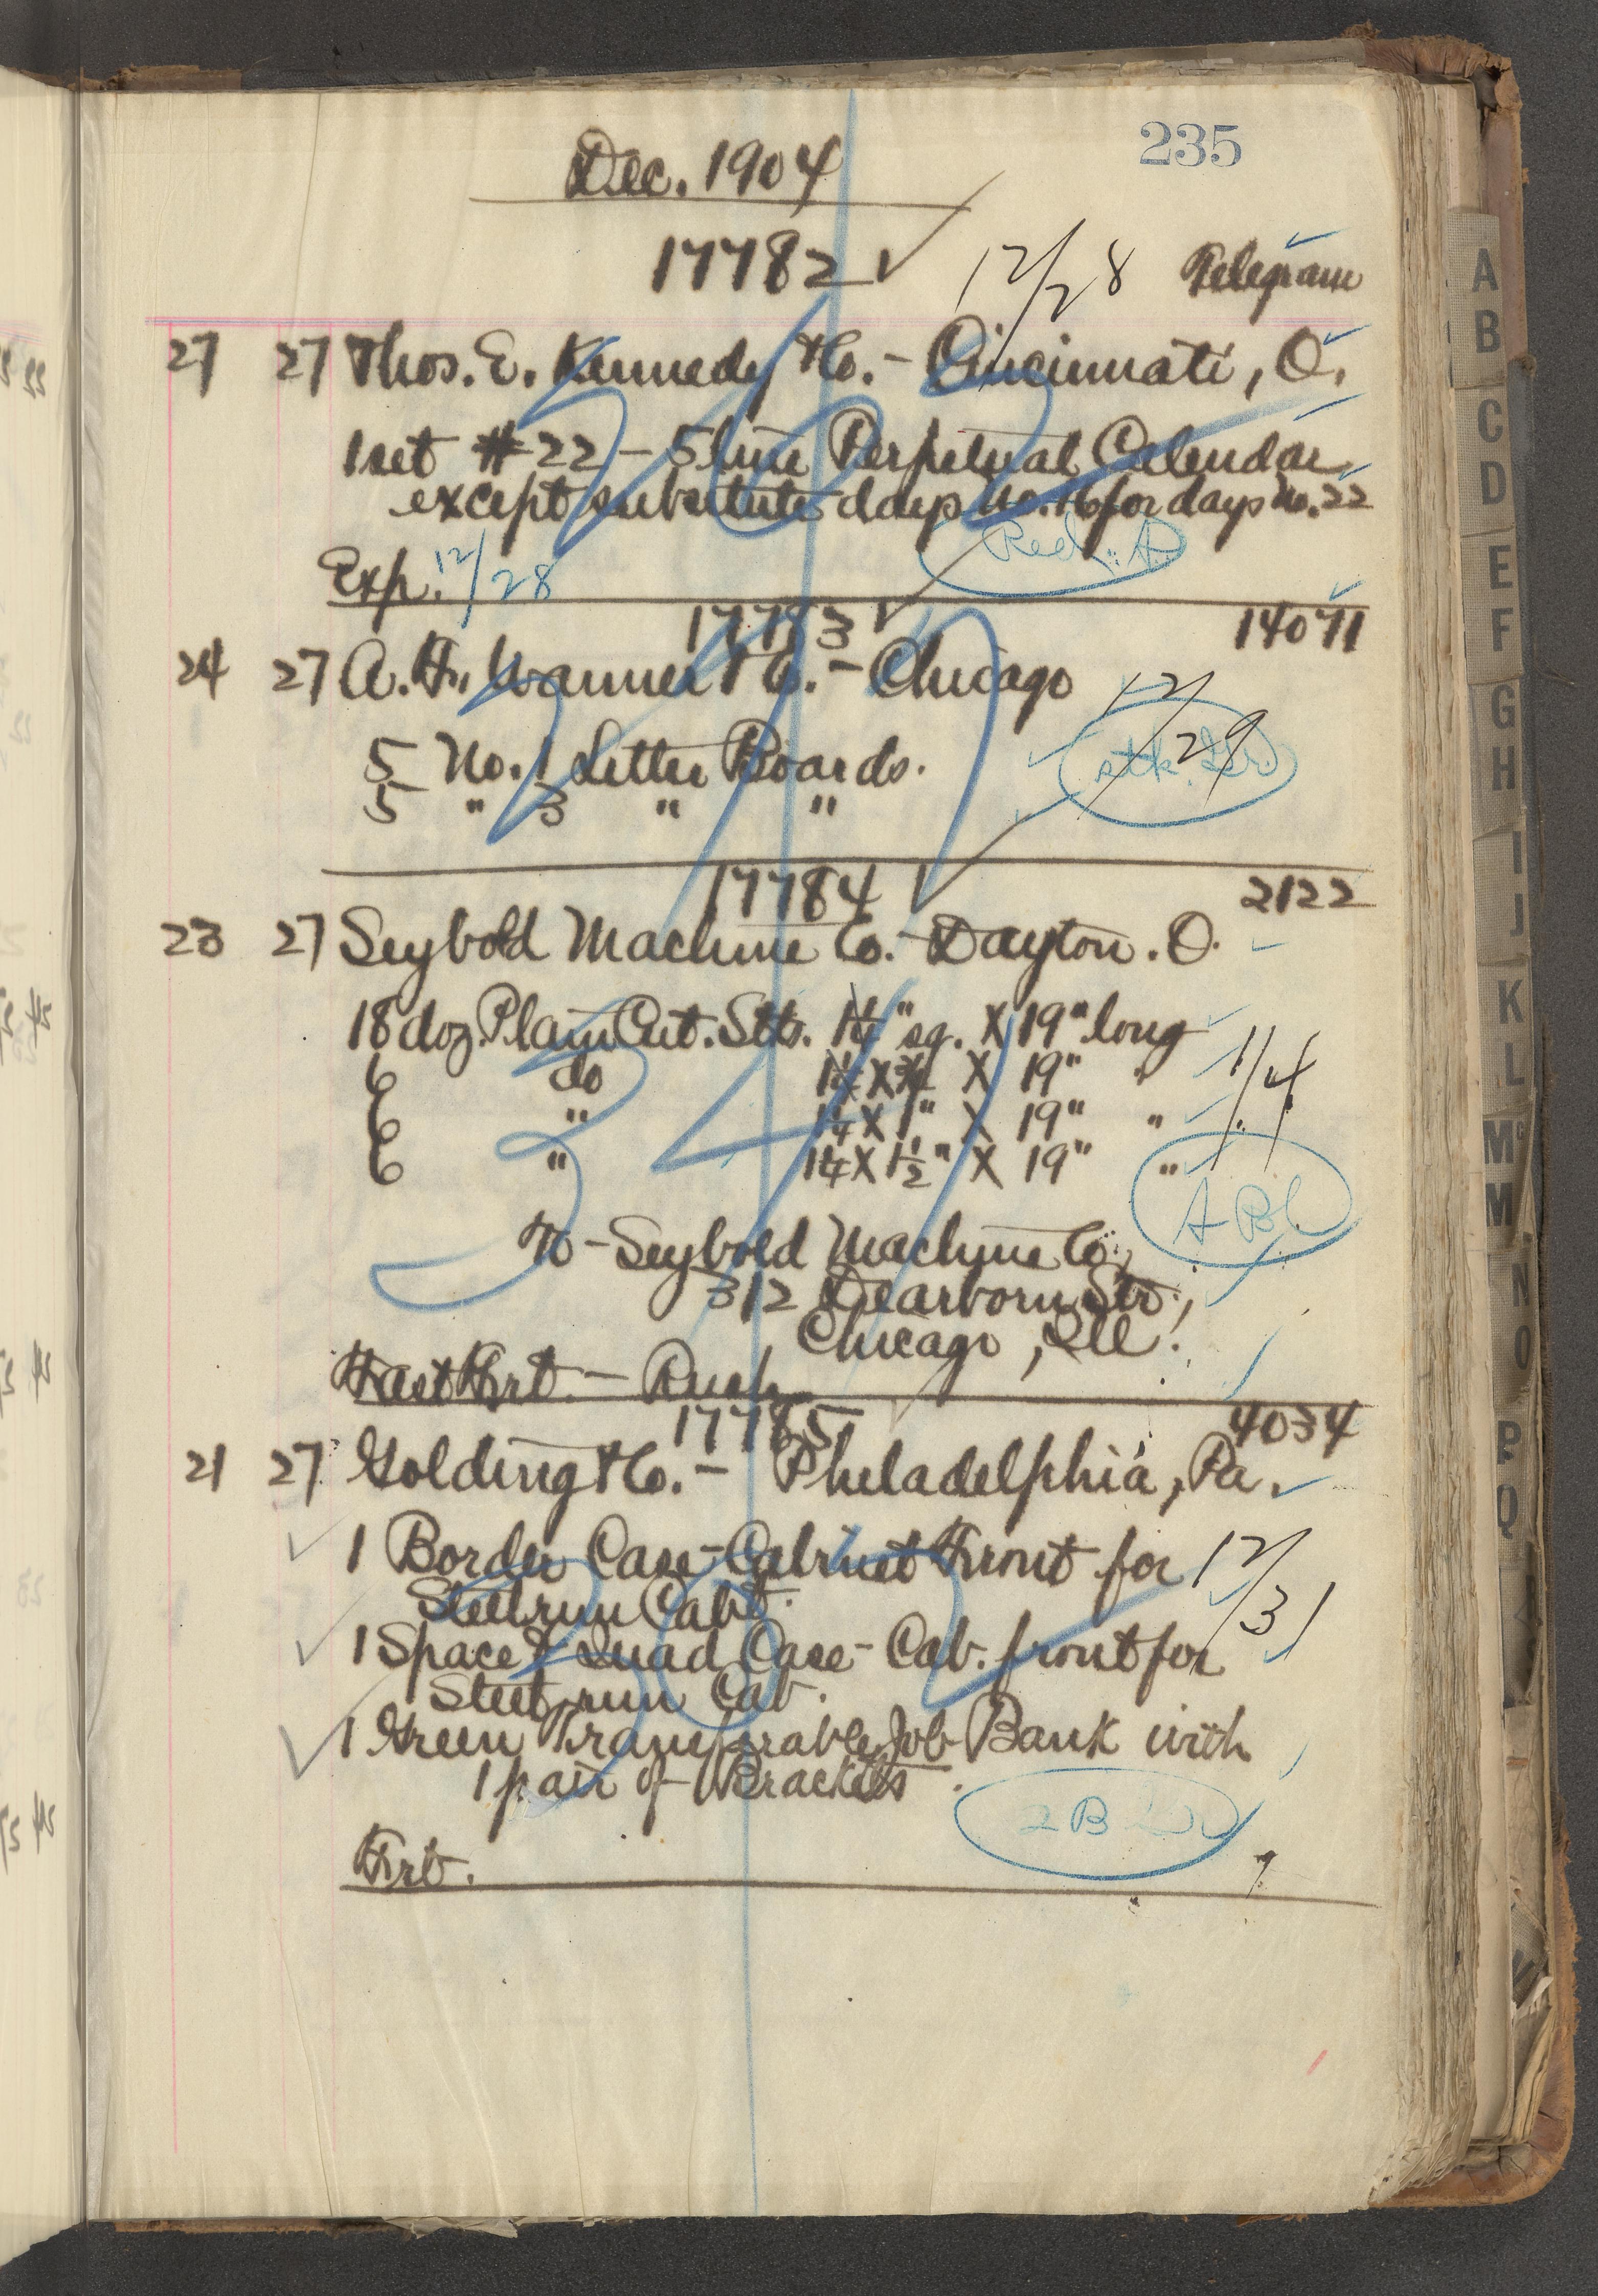 235
Dec. 1904
17782 12/28 Telegram
27 27 Thos. E. Kennedy & Co. - Cincinnati, O.
1 set #22 - 5 line Perpetual Calendar
except substitute days No. 16 for days No. 22
Exp. 12/28
17783 14071
24 27 A. F. Wanner & Co. - Chicago
12/29
5 No. 1 Letter Boards.
5 " 3 " "
17784 2122
23 27 Seybold Machine Co. - Dayton. O.
18 doz. Plain Cut. Stks. 1¼" sq. X 19" long
6 do X 19" "
6 " 1¼ X 1" X 19" "
6 " 1¼ X 1½" X 19" "
1/4
To - Seybold Machine Co.,
312 Dearborn Str.,
Chicago, Ill.
Fast Frt. - Rush
17785 4034
21 27 Golding & Co. - Philadelphia, Pa.
1 Border Case - Cabinet Front for
12/31
Steel run Cabt.
1 Space & Quad Case - Cab. front for
Steel run Cab.
1 Green Job Bank with
1 pair of Brackets.
2 B
Frt.
A
B
C
D
E
F
G
H
I
J
K
L
M
M
N
O
P
Q